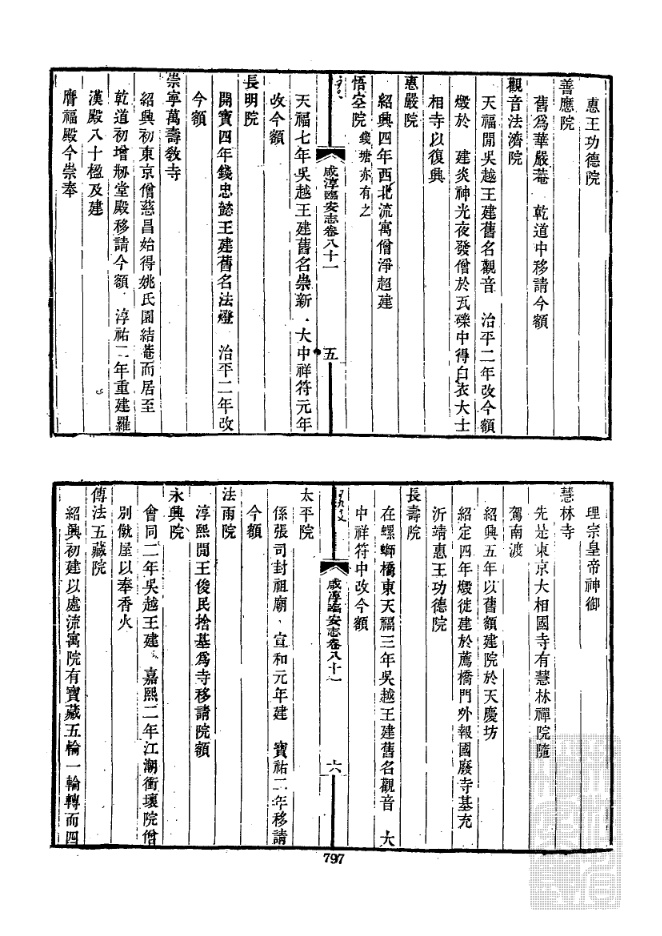 惠王功德院
善應院
舊爲華嚴菴 乾道中移請今額
觀音法濟院
天福閒吳越王建舊名觀音 治平二年改今額
燬於 建炎神光夜發僧於瓦礫中得白衣大士
相寺以復興
惠嚴院
紹興四年西北流寓僧淨超建
悟空院 錢塘亦有之
咸淳臨安志卷八十一 五
天福七年吳越王建舊名崇新 大中祥符元年
改今額
長明院
開寶四年錢忠懿王建舊名法燈 治平二年改
今額
崇寧萬壽敎寺
紹興初東京僧慈昌始得姚氏園結菴而居至
乾道初增㓱堂殿移請今額 淳祐二年重建羅
漢殿八十楹及建
膺福殿今崇奉
理宗皇帝神御
慧林寺
先是東京大相國寺有慧林禪院隨
駕南渡
紹興五年以舊額建院於天慶坊
紹定四年燬徙建於薦橋門外報國廢寺基充
沂靖惠王功德院
長壽院
在螺螄橋東天福三年吳越王建舊名觀音 大
中祥符中改今額
咸淳臨安志卷八十一 六
太平院
係張司封祖廟、宣和元年建 寶祐二年移請
今額
法雨院
淳熙閒王俊民捨基爲寺移請院額
永興院
會同二年吳越王建、嘉熙二年江潮衝壞院僧
別僦屋以奉香火
傳法五藏院
紹興初建以處流寓院有寶藏五輪一輪轉而四
797